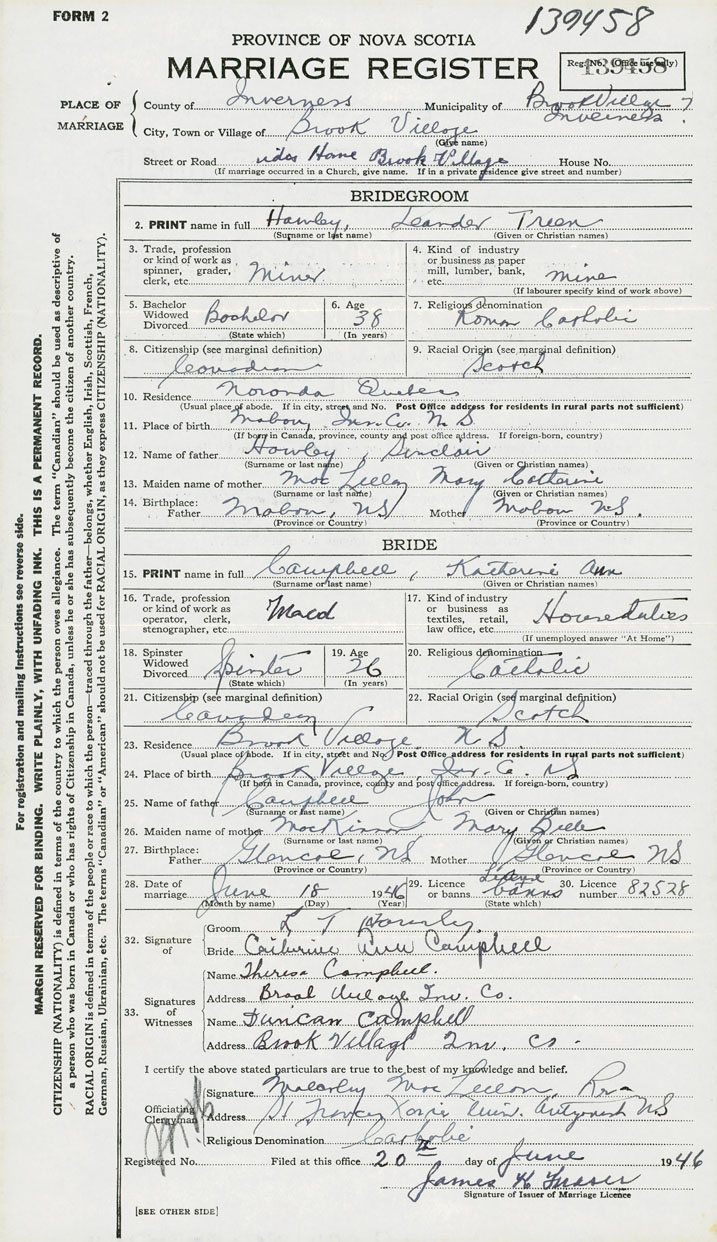 FORM 2
139458
PROVINCE OF NOVA SCOTIA
MARRIAGE REGISTER
Reg. No. (Office use only)
139458
PLACE OF MARRIAGE
County of Inverness Municipality of Brook Village
Inverness
City, Town or Village of Brook Village
(Give name)
Street or Road Home Brook Village House No.
(If marriage occurred in a Church, give name. If in a private residence give street and number)
BRIDEGROOM
2. PRINT name in full Hawley, Leander Treen
(Surname or last name) (Given or Christian names)
3. Trade, profession or kind of work as spinner, grader, clerk, etc. Miner
4. Kind of industry or business as paper mill, lumber, bank, etc. mine
(If labourer specify kind of work above)
5. Bachelor Widowed Divorced Bachelor
(State which)
6. Age 38
(In years)
7. Religious denomination Roman Catholic
8. Citizenship (see marginal definition) Canadian
9. Racial Origin (see marginal definition) Scotch
10. Residence Noranda Quebec
(Usual place of abode. If in city, street and No. Post Office address for residents in rural parts not sufficient)
11. Place of birth Mabou, Inv. Co. N S
(If born in Canada, province, county and post office address. If foreign-born, country)
12. Name of father Hawley, Sinclair
(Surname or last name) (Given or Christian names)
13. Maiden name of mother Mac Lellan Mary Catherine
(Surname or last name) (Given or Christian names)
14. Birthplace: Father Mabou, NS Mother Mabou NS.
(Province or Country) (Province or Country)
BRIDE
15. PRINT name in full Campbell, Katherine Ann
(Surname or last name) (Given or Christian names)
16. Trade, profession or kind of work as operator, clerk, stenographer, etc. Maid
17. Kind of industry or business as textiles, retail, law office, etc. Houseduties
(If unemployed answer "At Home")
18. Spinster Widowed Divorced Spinster
(State which)
19. Age 26
(In years)
20. Religious denomination Catholic
21. Citizenship (see marginal definition) Canadian
22. Racial Origin (see marginal definition) Scotch
23. Residence Brook Village, N S
(Usual place of abode. If in city, street and No. Post Office address for residents in rural parts not sufficient)
24. Place of birth Brook Village, Inv. Co. NS
(If born in Canada, province, county and post office address. If foreign-born, country)
25. Name of father Campbell John
(Surname or last name) (Given or Christian names)
26. Maiden name of mother MacKinnon Mary Belle
(Surname or last name) (Given or Christian names)
27. Birthplace: Father Glencoe, NS Mother Glencoe NS
(Province or Country) (Province or Country)
28. Date of marriage June 18 1946
(Month by name) (Day) (Year)
29. Licence or banns banns
(State which)
30. Licence number 82528
32. Signature of
Groom L T Hawley
Bride Catherine Ann Campbell
33. Signatures of Witnesses
Name Theresa Campbell.
Address Brook Village Inv. Co.
Name Duncan Campbell
Address Brook Village Inv. Co.
I certify the above stated particulars are true to the best of my knowledge and belief.
Officiating Clergyman
Signature Mac Lellan,
Address St Francis Xavier Univ. Antigonish NS
Religious Denomination Catholic
Registered No. Filed at this office 20th day of June 1946
James H Fraser
Signature of Issuer of Marriage Licence
[SEE OTHER SIDE]
For registration and mailing Instructions see reverse side.
MARGIN RESERVED FOR BINDING. WRITE PLAINLY, WITH UNFADING INK. THIS IS A PERMANENT RECORD.
CITIZENSHIP (NATIONALITY) is defined in terms of the country to which the person owes allegiance. The term "Canadian" should be used as descriptive of
a person who was born in Canada or who has rights of Citizenship in Canada, unless he or she has subsequently become the citizen of another country.
RACIAL ORIGIN is defined in terms of the people or race to which the person—traced through the father—belongs, whether English, Irish, Scottish, French,
German, Russian, Ukrainian, etc. The terms "Canadian" or "American" should not be used for RACIAL ORIGIN, as they express CITIZENSHIP (NATIONALITY).